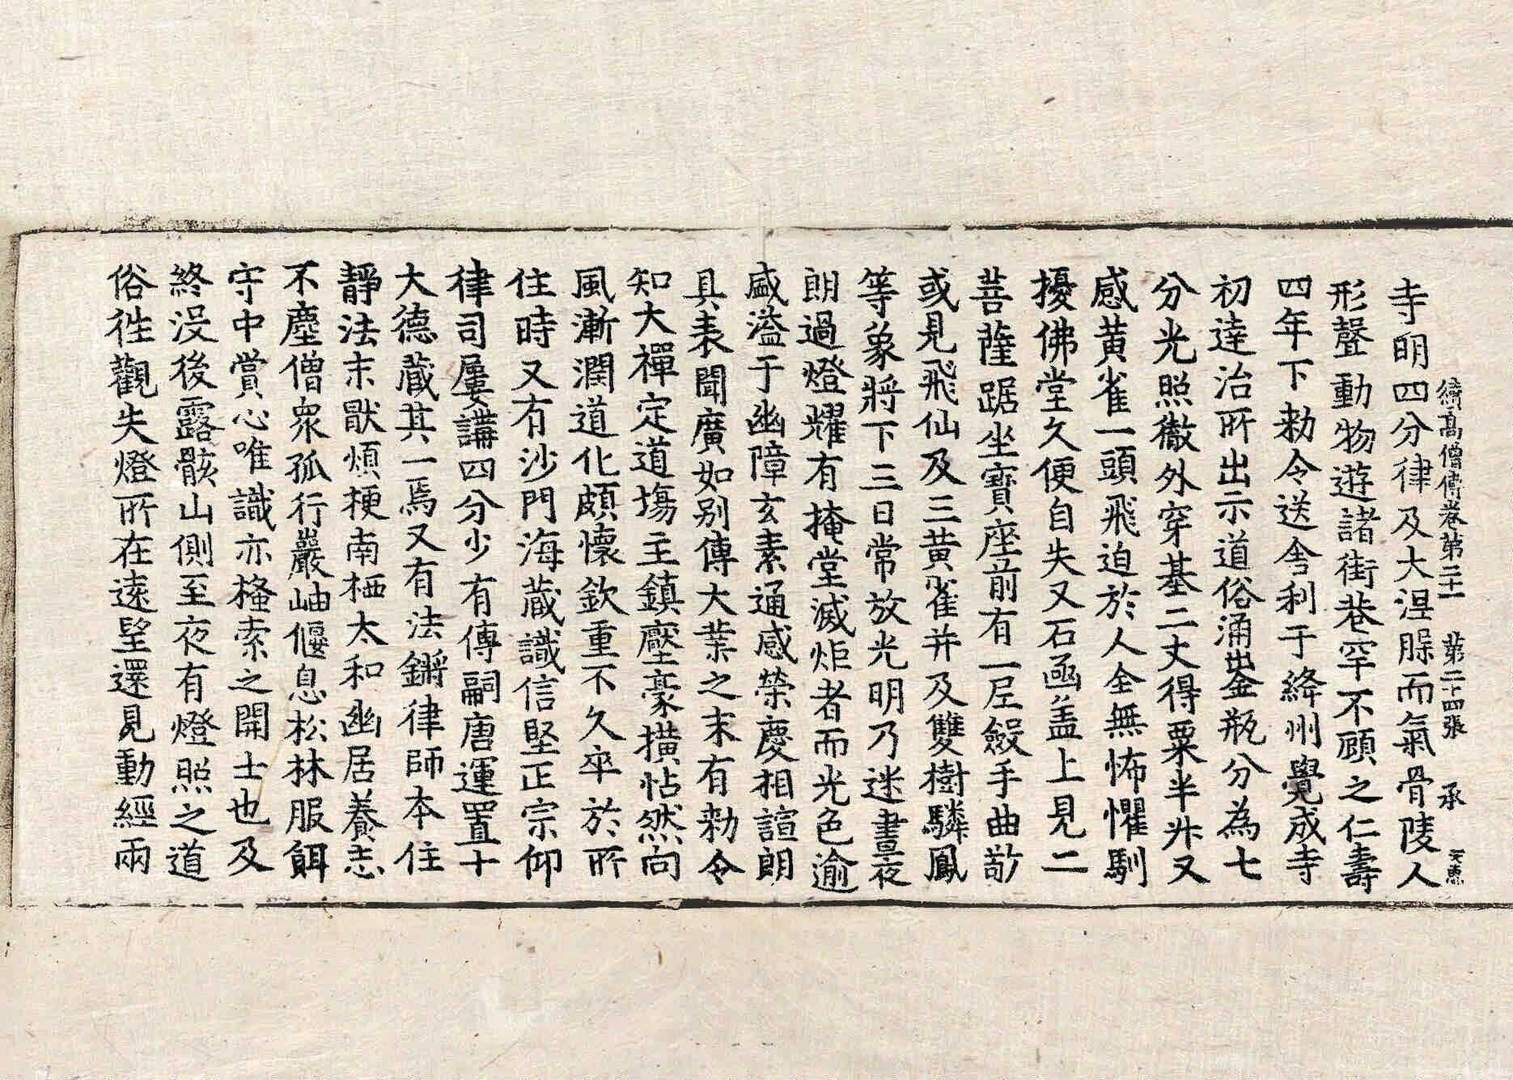 續高僧傳卷第二十一　第二十四張　承
寺明四分律及大涅槃而氣骨陵人
形聲動物遊諸街巷罕不顧之仁壽
四年下勑令送舍利于絳州覺成寺
初達治所出示道俗涌出金瓶分為七
分光照徹外穿基二丈得粟半升又
感黄雀一頭飛迫於人全無怖懼馴
擾佛堂久便自失又石函盖上見二
菩薩踞坐寶座前有一尼歛手曲敬
或見飛仙及三黄雀并及雙樹驎鳳
等象將下三日常放光明乃迷晝夜
朗過燈耀有掩堂滅炬者而光色逾
盛溢于幽障玄素通感榮慶相諠朗
具表聞廣如别傳大業之末有勑令
知大禪定道塲主鎮壓豪橫怗然向
風漸潤道化頗懷欽重不久卒於所
住時又有沙門海藏識信堅正宗仰
律司屢講四分少有傳嗣唐運置十
大德藏其一焉又有法鏘律師本住
靜法末猒煩梗南栖太和幽居養志
不塵僧衆孤行巖岫偃息松林服餌
守中賞心唯識亦㨪索之開士也及
終没後露骸山側至夜有燈照之道
俗往觀失燈所在遠望還見動經兩